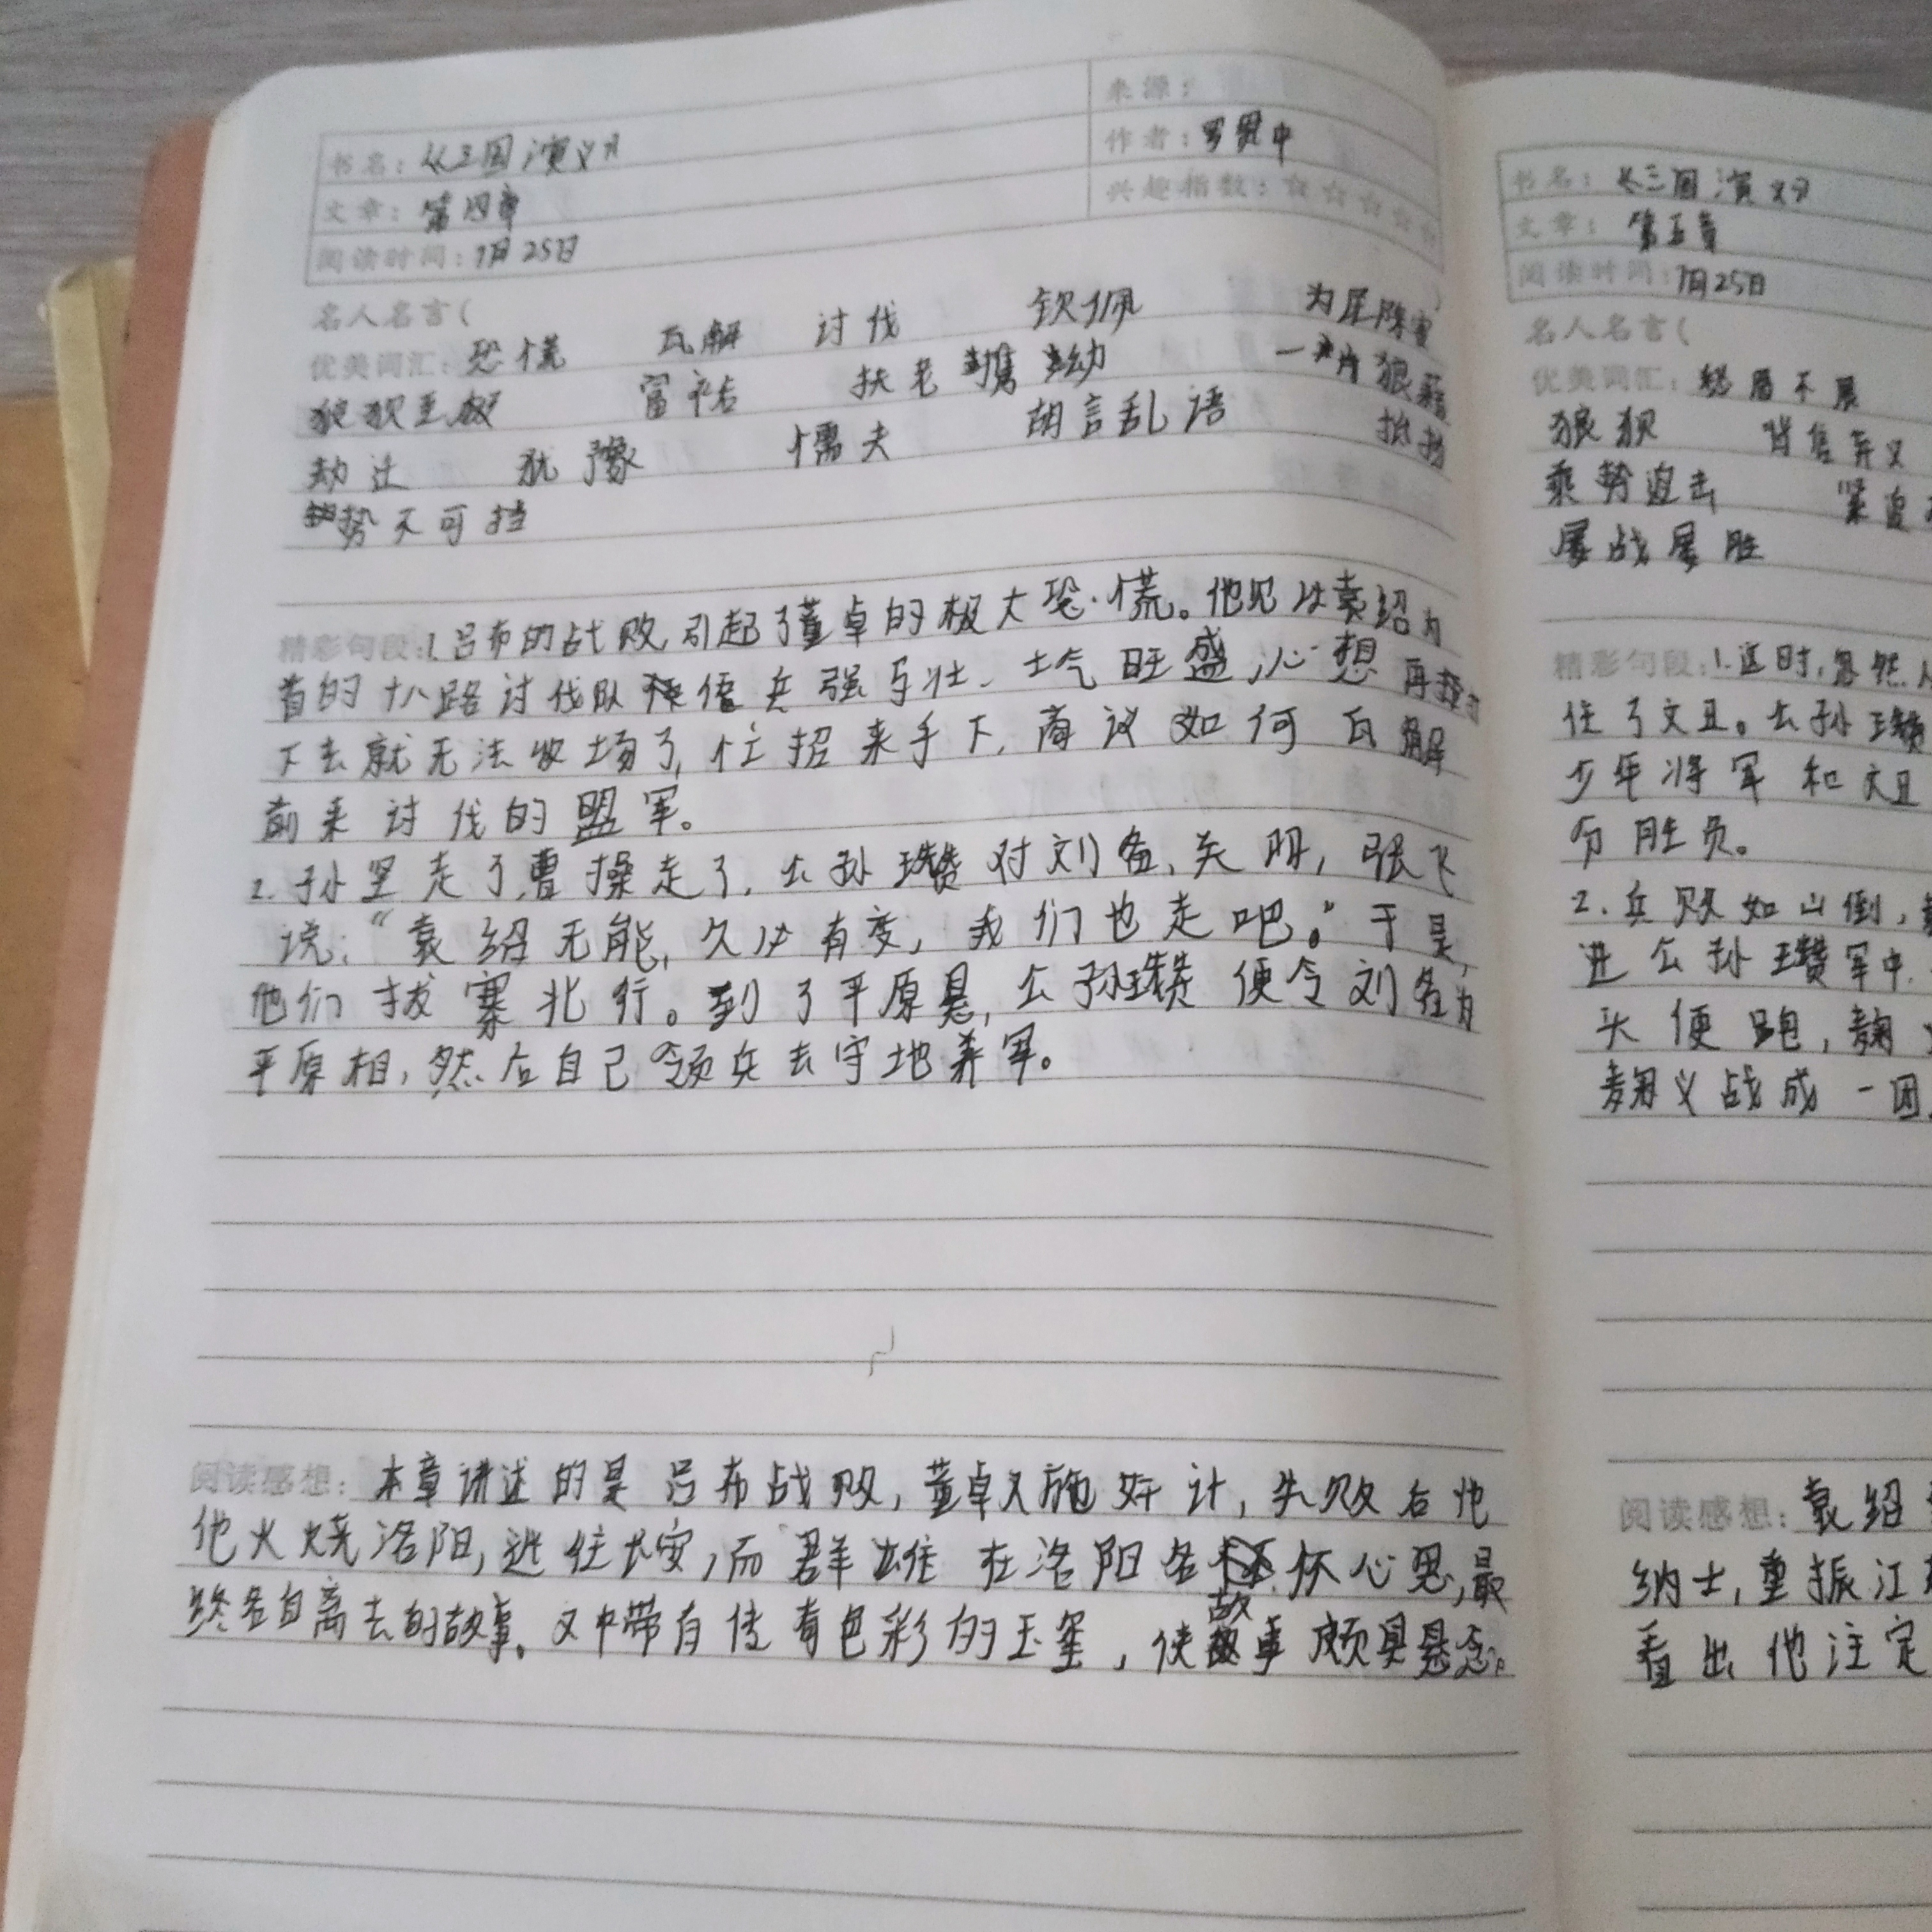 书名：《三国演义》
来源：
作者：罗贯中
文章：第四章
兴趣指数：☆☆☆☆☆
阅读时间：7月25日
名人名言（ ）
优美词汇：恐慌 瓦解 讨伐 钦佩 为屋陈
狼狈至极 富裕 扶老携幼 一片狼藉
劫迁 犹豫 懦夫 胡言乱语 抵挡
势不可挡
精彩句段：1.吕布的战败,引起了董卓的极大恐慌。他见以袁绍为
首的十八路讨伐队伍兵强马壮、士气旺盛,心想再
下去就无法收场了,忙招来手下,商议如何瓦解
前来讨伐的盟军。
2.孙坚走了,曹操走了,公孙瓒对刘备、关羽,张飞
说:“袁绍无能,久必有变,我们也走吧。”于是,
他们拔寨北行。到了平原县,公孙瓒便令刘备为
平原相,然后自己领兵去守地养军。
阅读感想：本章讲述的是吕布战败,董卓又施奸计,失败后他
他火烧洛阳,逃往长安,而群雄在洛阳各怀心思,最
终各自离去的故事。文中带有传奇色彩的玉玺,使故事颇具悬念。
书名：《三国演义》
文章：第五章
阅读时间：7月25日
名人名言（
优美词汇：愁眉不展
狼狈 背信弃义
乘势追击 紧追
屡战屡胜
精彩句段：1.这时,忽然
住了文丑。公孙瓒
少年将军和文丑
分胜负。
2.兵败如山倒,
进公孙瓒军中,
头便跑,麴
麴义战成一团,
阅读感想：袁绍
纳士,重振江
看出他注定